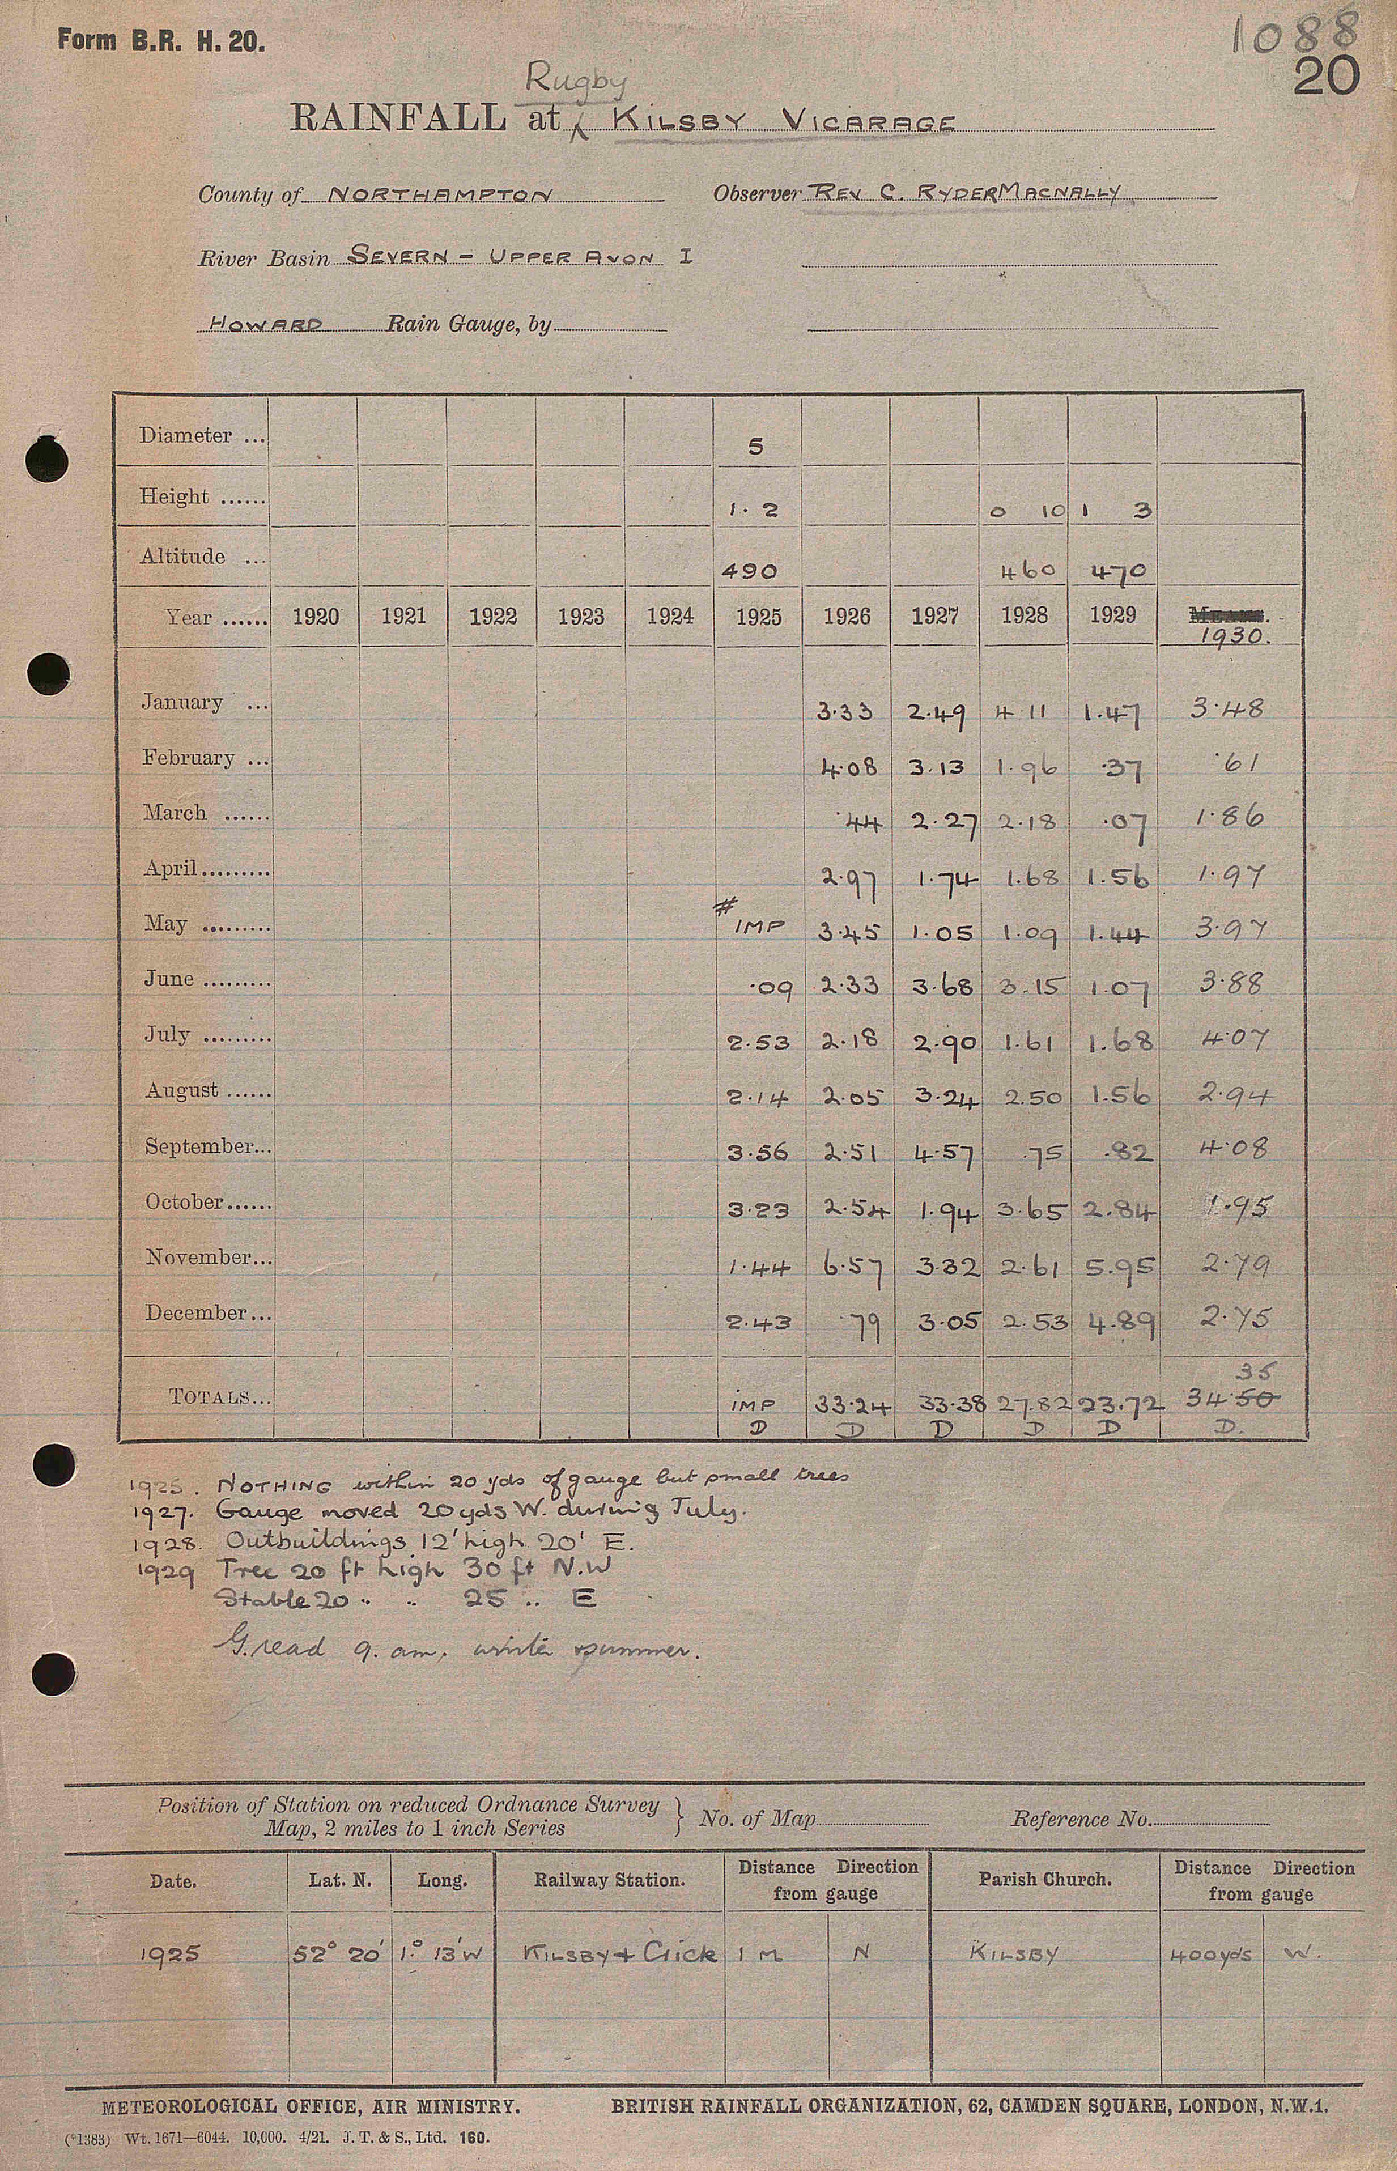 Form B.R. H. 20.
1088
20
Rugby
RAINFALL at KILSBY VICARAGE
County of NORTHAMPTON Observer REV C. RYDER MACNALLY
River Basin SEVERN – UPPER AVON I
HOWARD Rain Gauge, by
Diameter ... 5
Height ...... 1· 2 0 10 1 3
Altitude ... 490 460 470
Year ...... 1920 1921 1922 1923 1924 1925 1926 1927 1928 1929
1930.
January ... 3·33 2·49 4 11 1·47 3·48
February ... 4·08 3·13 1·96 ·37 ·61
March ...... ·44 2·27 2·18 ·07 1·86
April......... 2·97 1·74 1·68 1·56 1·97
#
May ......... IMP 3·45 1·05 1·09 1·44 3·97
June ......... ·09 2·33 3·68 3·15 1·07 3·88
July ......... 2·53 2·18 2·90 1·61 1·68 4·07
August ...... 2·14 2·05 3·24 2.50 1·56 2·94
September... 3·56 2·51 4·57 ·75 ·82 4·08
October...... 3·23 2·54 1·94 3·65 2·84 1·95
November... 1·44 6·57 3·32 2·61 5·95 2·79
December... 2·43 ·79 3·05 2·53 4·89 2·75
35
TOTALS... IMP 33·24 33·38 27·82 23·72 34·50
D D D D D D.
1925. NOTHING within 20 yds of gauge but small trees
1927. Gauge moved 20 yds W. during July.
1928. Outbuildings 12' high 20' E.
1929 Tree 20 ft high 30 ft N.W
Stable 20 " " 25 " E
G. read 9. am. winter & summer.
Position of Station on reduced Ordnance Survey
Map, 2 miles to 1 inch Series } No. of Map Reference No.
Date. Lat. N. Long. Railway Station. Distance Direction from gauge Parish Church. Distance Direction from gauge
1925 52° 20' 1.° 13' W KILSBY + Crick 1 M N KILSBY 400 yds W.
METEOROLOGICAL OFFICE, AIR MINISTRY. BRITISH RAINFALL ORGANIZATION, 62, CAMDEN SQUARE, LONDON, N.W.1.
(*1383) Wt. 1671—6044. 10,000. 4/21. J. T. & S., Ltd. 160.